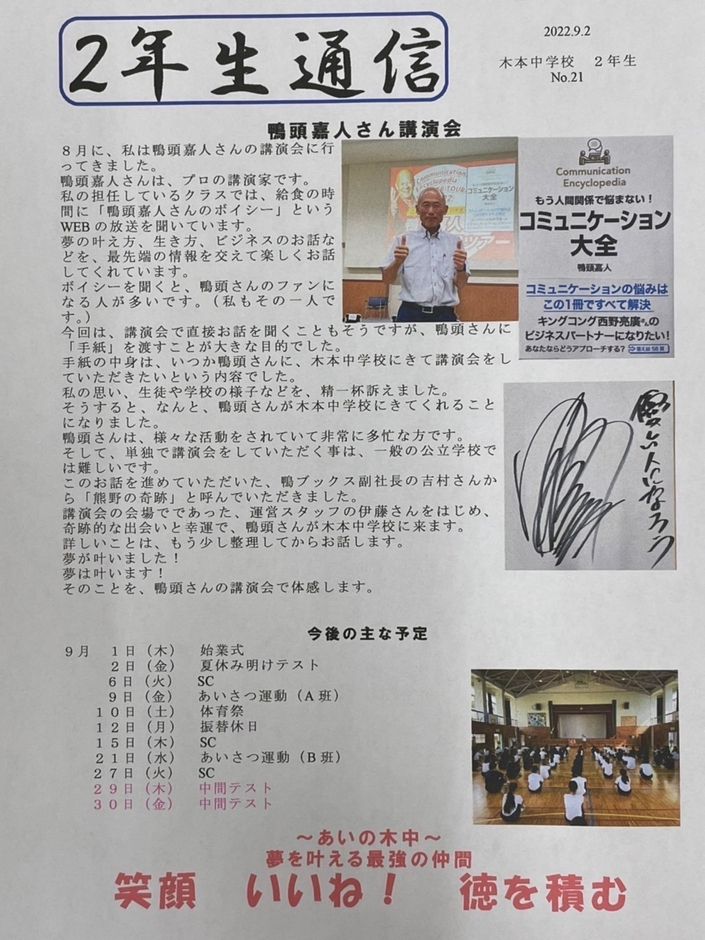 2年生通信
2022.9.2
木本中学校 2年生
No.21
鴨頭嘉人さん講演会
8月に、私は鴨頭嘉人さんの講演会に行
ってきました。
鴨頭嘉人さんは、プロの講演家です。
私の担任しているクラスでは、給食の時
間に「鴨頭嘉人さんのボイシー」という
WEBの放送を聞いています。
夢の叶え方、生き方、ビジネスのお話な
どを、最先端の情報を交えて楽しくお話
してくれています。
ボイシーを聞くと、鴨頭さんのファンに
なる人が多いです。(私もその一人で
す。)
今回は、講演会で直接お話を聞くこともそうですが、鴨頭さんに
「手紙」を渡すことが大きな目的でした。
手紙の中身は、いつか鴨頭さんに、木本中学校にきて講演会をし
ていただきたいという内容でした。
私の思い、生徒や学校の様子などを、精一杯訴えました。
そうすると、なんと、鴨頭さんが木本中学校にきてくれること
になりました。
鴨頭さんは、様々な活動をされていて非常に多忙な方です。
そして、単独で講演会をしていただく事は、一般の公立学校で
は難しいです。
このお話を進めていただいた、鴨ブックス副社長の吉村さんか
ら「熊野の奇跡」と呼んでいただきました。
講演会の会場でであった、運営スタッフの伊藤さんをはじめ、
奇跡的な出会いと幸運で、鴨頭さんが木本中学校に来ます。
詳しいことは、もう少し整理してからお話します。
夢が叶いました!
夢は叶います!
そのことを、鴨頭さんの講演会で体感します。
コミュニケーション
大全
Communication
Encyclopedia
もう人間関係で悩まない!
コミュニケーション
大全
鴨頭嘉人
コミュニケーションの悩みは
この1冊ですべて解決
キングコング西野亮廣さんの
ビジネスパートナーになりたい!
あなたならどうアプローチする?
今後の主な予定
9月 1日(木) 始業式
2日(金) 夏休み明けテスト
6日(火) SC
9日(金) あいさつ運動(A班)
10日(土) 体育祭
12日(月) 振替休日
15日(木) SC
21日(水) あいさつ運動(B班)
27日(火) SC
29日(木) 中間テスト
30日(金) 中間テスト
～あいの木中～
夢を叶える最強の仲間
笑顔 いいね! 徳を積む